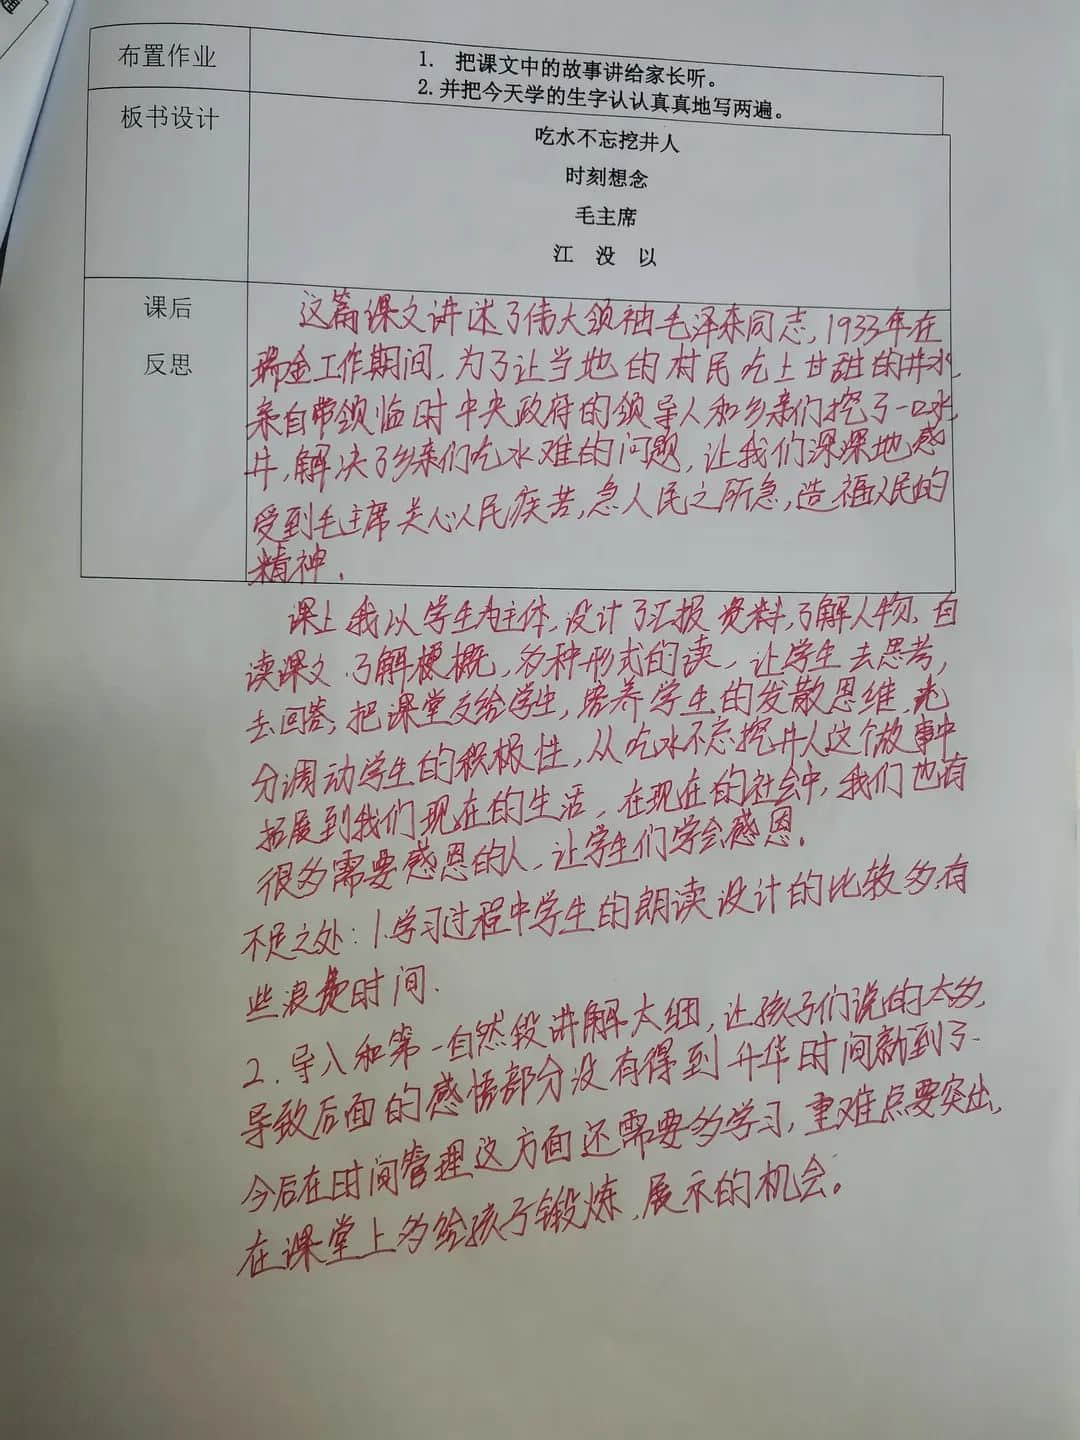 布置作业
1. 把课文中的故事讲给家长听。
2.并把今天学的生字认认真真地写两遍。
板书设计
吃水不忘挖井人
时刻想念
毛主席
江 没 以
课后
反思
这篇课文讲述了伟大领袖毛泽东同志,1933年在
瑞金工作期间,为了让当地的村民吃上甘甜的井水,
亲自带领临时中央政府的领导人和乡亲们挖了一口水
井,解决了乡亲们吃水难的问题,让我们深深地感
受到毛主席关心人民疾苦,急人民之所急,造福人民的
精神.
课上我以学生为主体,设计了汇报资料,了解人物,自
读课文.了解梗概,多种形式的读,让学生去思考,
去回答,把课堂交给学生,培养学生的发散思维,充
分调动学生的积极性,从吃水不忘挖井人这个故事中
拓展到我们现在的生活,在现在的社会中,我们也有
很多需要感恩的人,让学生们学会感恩.
不足之处:1.学习过程中学生的朗读设计的比较多,有
些浪费时间.
2.导入和第一自然段讲解太细,让孩子们说的太多,
导致后面的感悟部分没有得到升华时间就到了.
今后在时间管理这方面还需要多学习,重难点要突出,
在课堂上多给孩子锻炼,展示的机会。